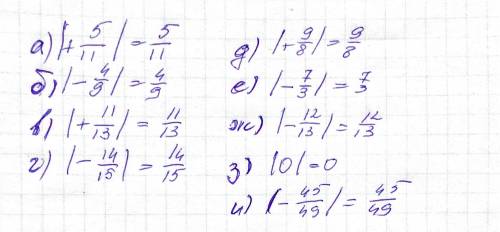 а) |+5/11| = 5/11
б) |-4/9| = 4/9
в) |+11/13| = 11/13
г) |-14/15| = 14/15
д) |+9/8| = 9/8
е) |-7/3| = 7/3
ж) |-12/13| = 12/13
з) |0| = 0
и) |-45/49| = 45/49